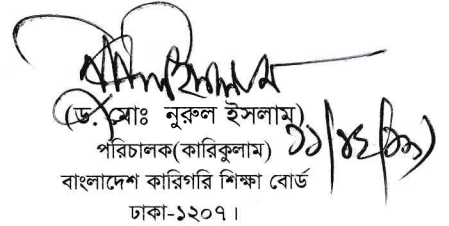 (ড. মোঃ নুরুল ইসলাম)
পরিচালক(কারিকুলাম)
বাংলাদেশ কারিগরি শিক্ষা বোর্ড
ঢাকা-১২০৭।